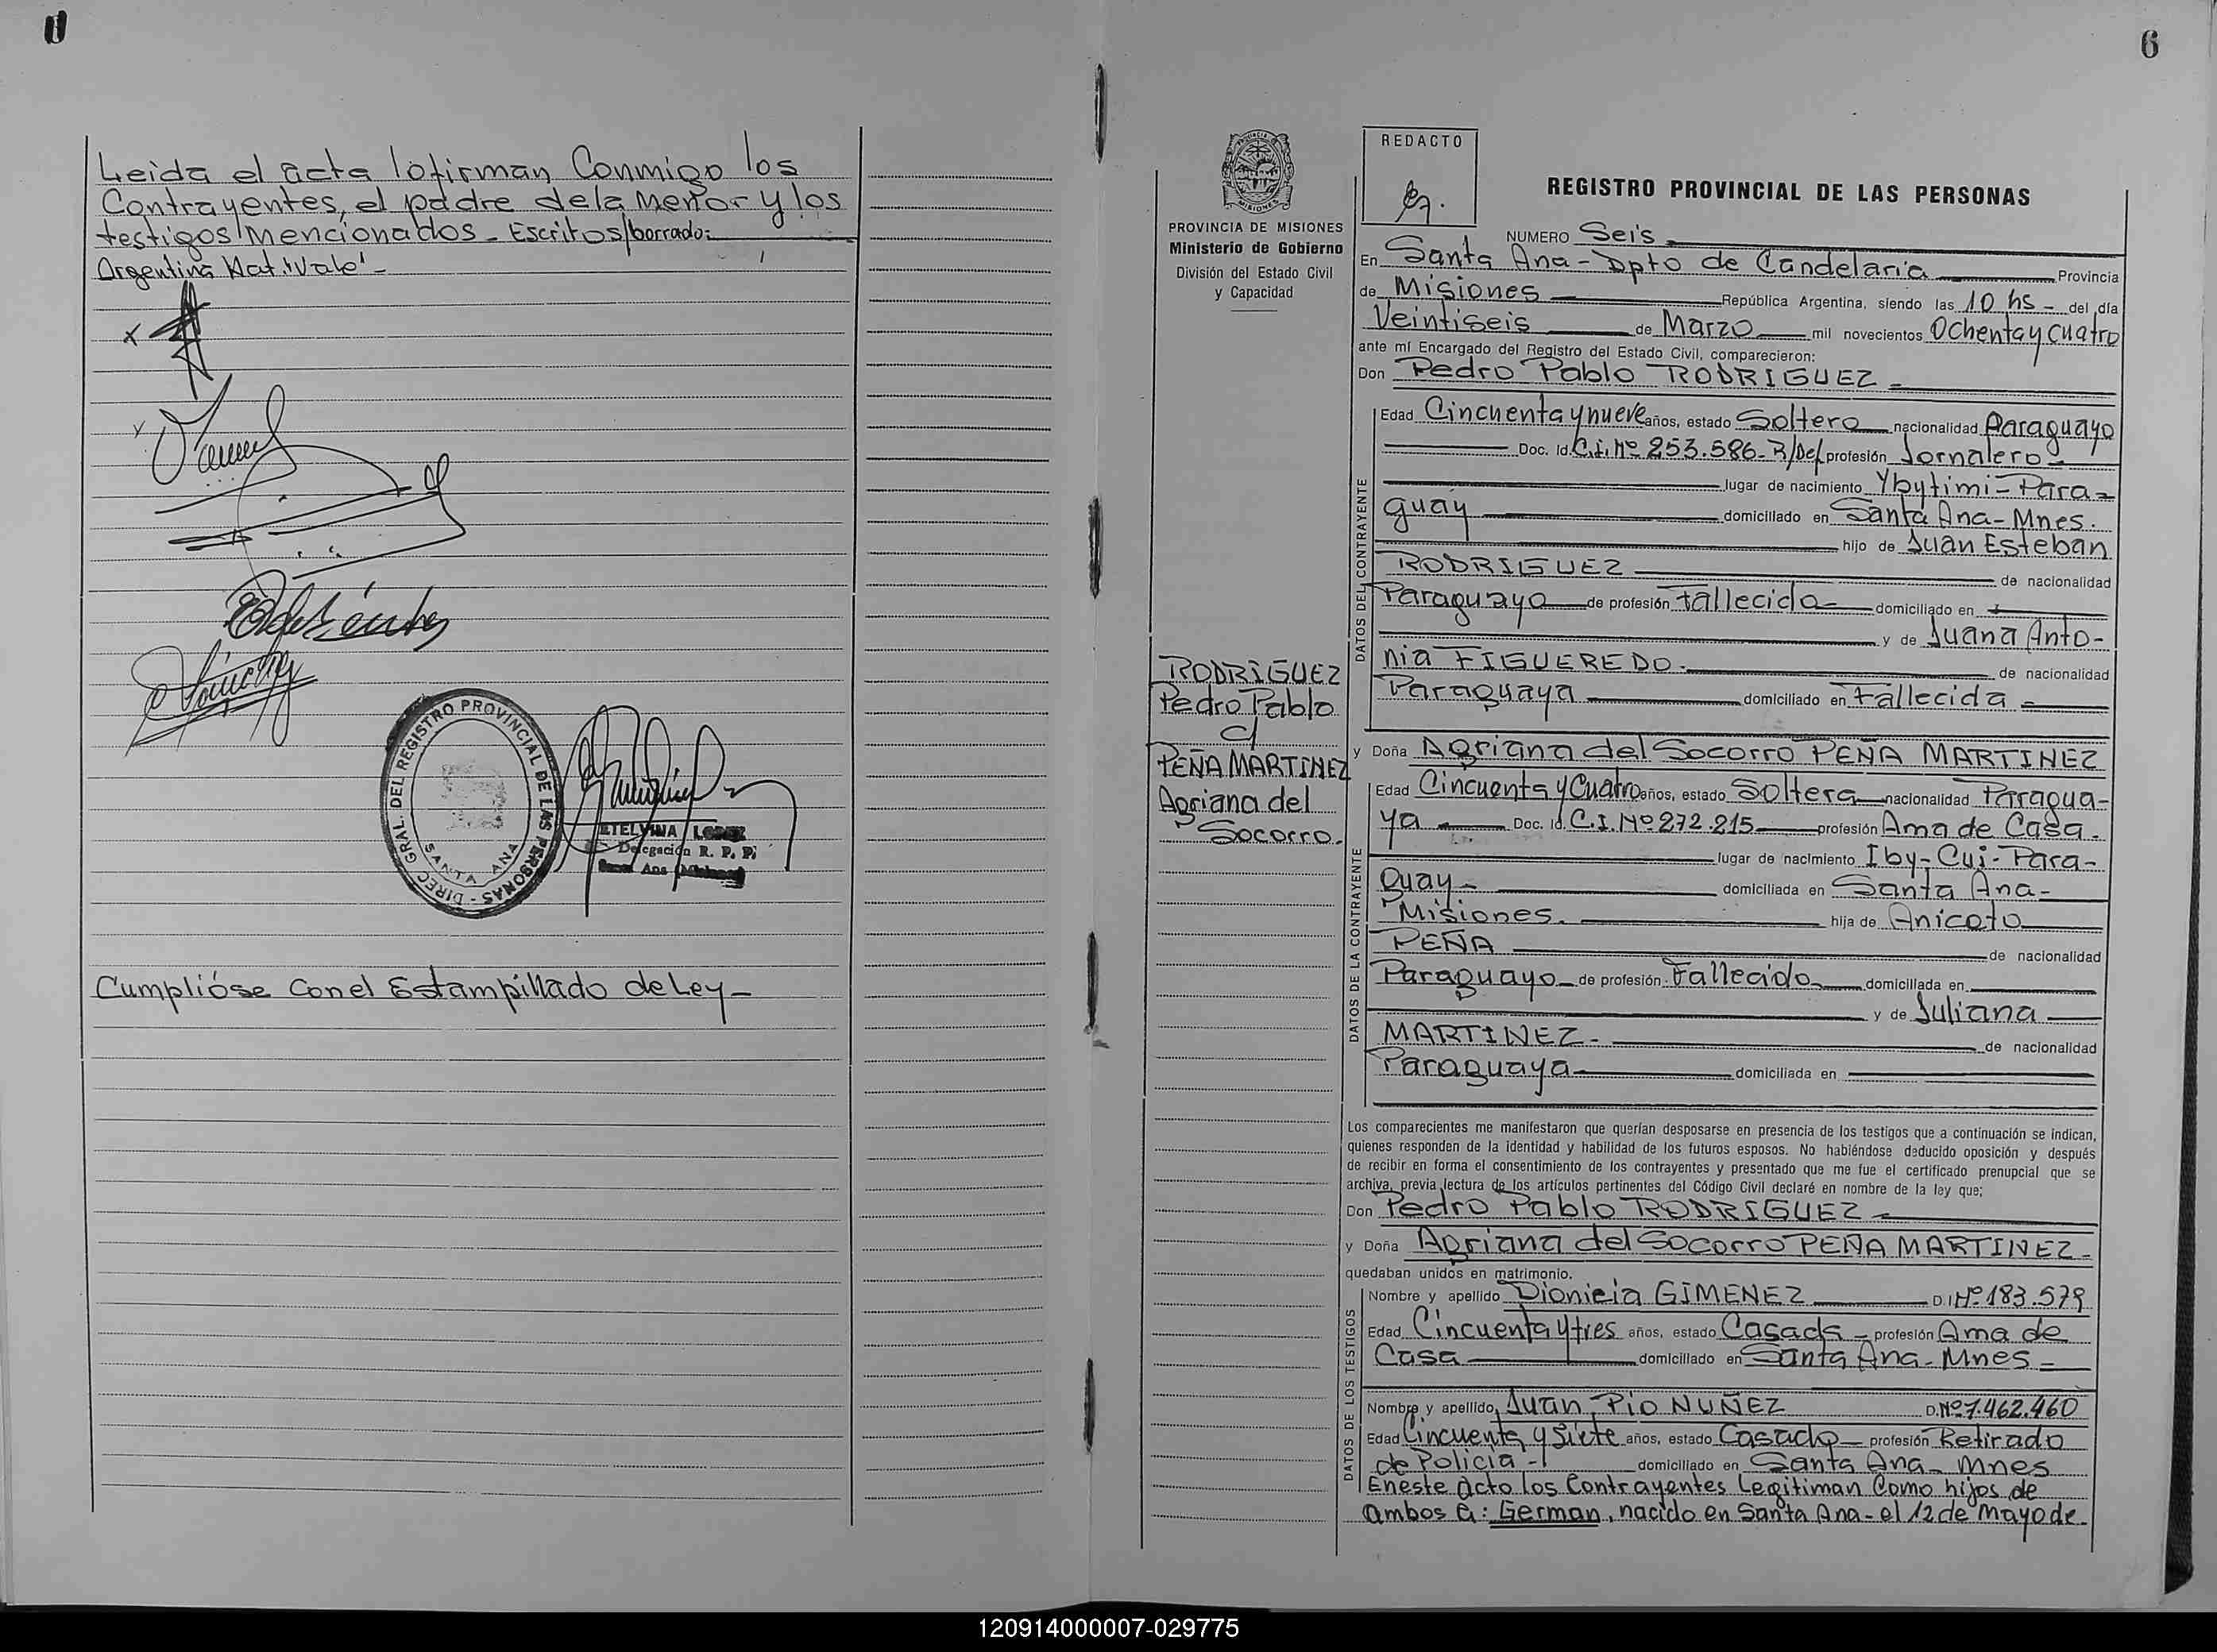 Leida el acta lo firman Conmigo los
Contrayentes, el padre de la Menor y los
testigos Mencionados - Escritos/borrado:
Argentina Nat. "Vale" -
DIREC. GRAL. DEL REGISTRO PROVINCIAL DE LAS PERSONAS -
SANTA ANA
ETELVINA LOPEZ
Delegación R. P. P.
Santa Ana (Misiones)
Cumplióse con el Estampillado de Ley -
6
PROVINCIA DE MISIONES
Ministerio de Gobierno
División del Estado Civil
y Capacidad
RODRIGUEZ
Pedro Pablo
c/
PEÑA MARTINEZ
Agriana del
Socorro.
REDACTO
REGISTRO PROVINCIAL DE LAS PERSONAS
NUMERO Seis
En Santa Ana - Dpto de Candelaria Provincia
de Misiones República Argentina, siendo las 10 hs - del día
Veintiseis de Marzo mil novecientos Ochenta y cuatro
ante mí Encargado del Registro del Estado Civil, comparecieron:
Don Pedro Pablo RODRIGUEZ -
DATOS DEL CONTRAYENTE
Edad Cincuenta y nueve años, estado Soltero nacionalidad Paraguayo
Doc. Id. C.I. Nº 253.586 - R/Def profesión Jornalero -
lugar de nacimiento Ybytimi - Para-
guay domiciliado en Santa Ana - Mnes.
hijo de Juan Esteban
RODRIGUEZ de nacionalidad
Paraguayo de profesión Fallecido - domiciliado en
y de Juana Anto-
nia FIGUEREDO. de nacionalidad
Paraguaya domiciliado en Fallecida -
y Doña Agriana del Socorro PEÑA MARTINEZ
DATOS DE LA CONTRAYENTE
Edad Cincuenta y Cuatro años, estado Soltera nacionalidad Paragua-
ya Doc. Id. C.I. Nº 272.215 profesión Ama de Casa.
lugar de nacimiento Iby-Cui - Para-
guay - domiciliada en Santa Ana -
Misiones. hija de Aniceto
PEÑA de nacionalidad
Paraguayo de profesión Fallecido domiciliada en
y de Juliana
MARTINEZ - de nacionalidad
Paraguaya domiciliada en
Los comparecientes me manifestaron que querían desposarse en presencia de los testigos que a continuación se indican,
quienes responden de la identidad y habilidad de los futuros esposos. No habiéndose deducido oposición y después
de recibir en forma el consentimiento de los contrayentes y presentado que me fue el certificado prenupcial que se
archiva, previa lectura de los artículos pertinentes del Código Civil declaré en nombre de la ley que;
Don Pedro Pablo RODRIGUEZ -
y Doña Agriana del Socorro PEÑA MARTINEZ -
quedaban unidos en matrimonio.
DATOS DE LOS TESTIGOS
Nombre y apellido Dionicia GIMENEZ D.I Nº 183.579
Edad Cincuenta y tres años, estado Casada - profesión Ama de
Casa domiciliado en Santa Ana - Mnes -
Nombre y apellido Juan Pio NUÑEZ D. Nº 7.462.460
Edad Cincuenta y Siete años, estado Casado profesión Retirado
de Policia - domiciliado en Santa Ana - Mnes
En este Acto los Contrayentes Legitiman Como hijos de
ambos a: German, nacido en Santa Ana - el 12 de Mayo de
120914000007-029775